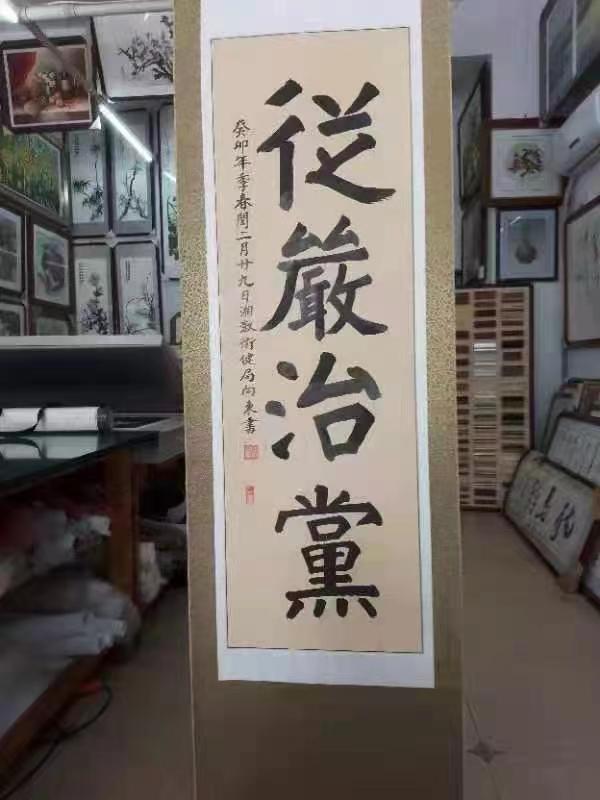 從嚴治黨
癸卯年季春閏二月廿九日湘敦衛健局向東書